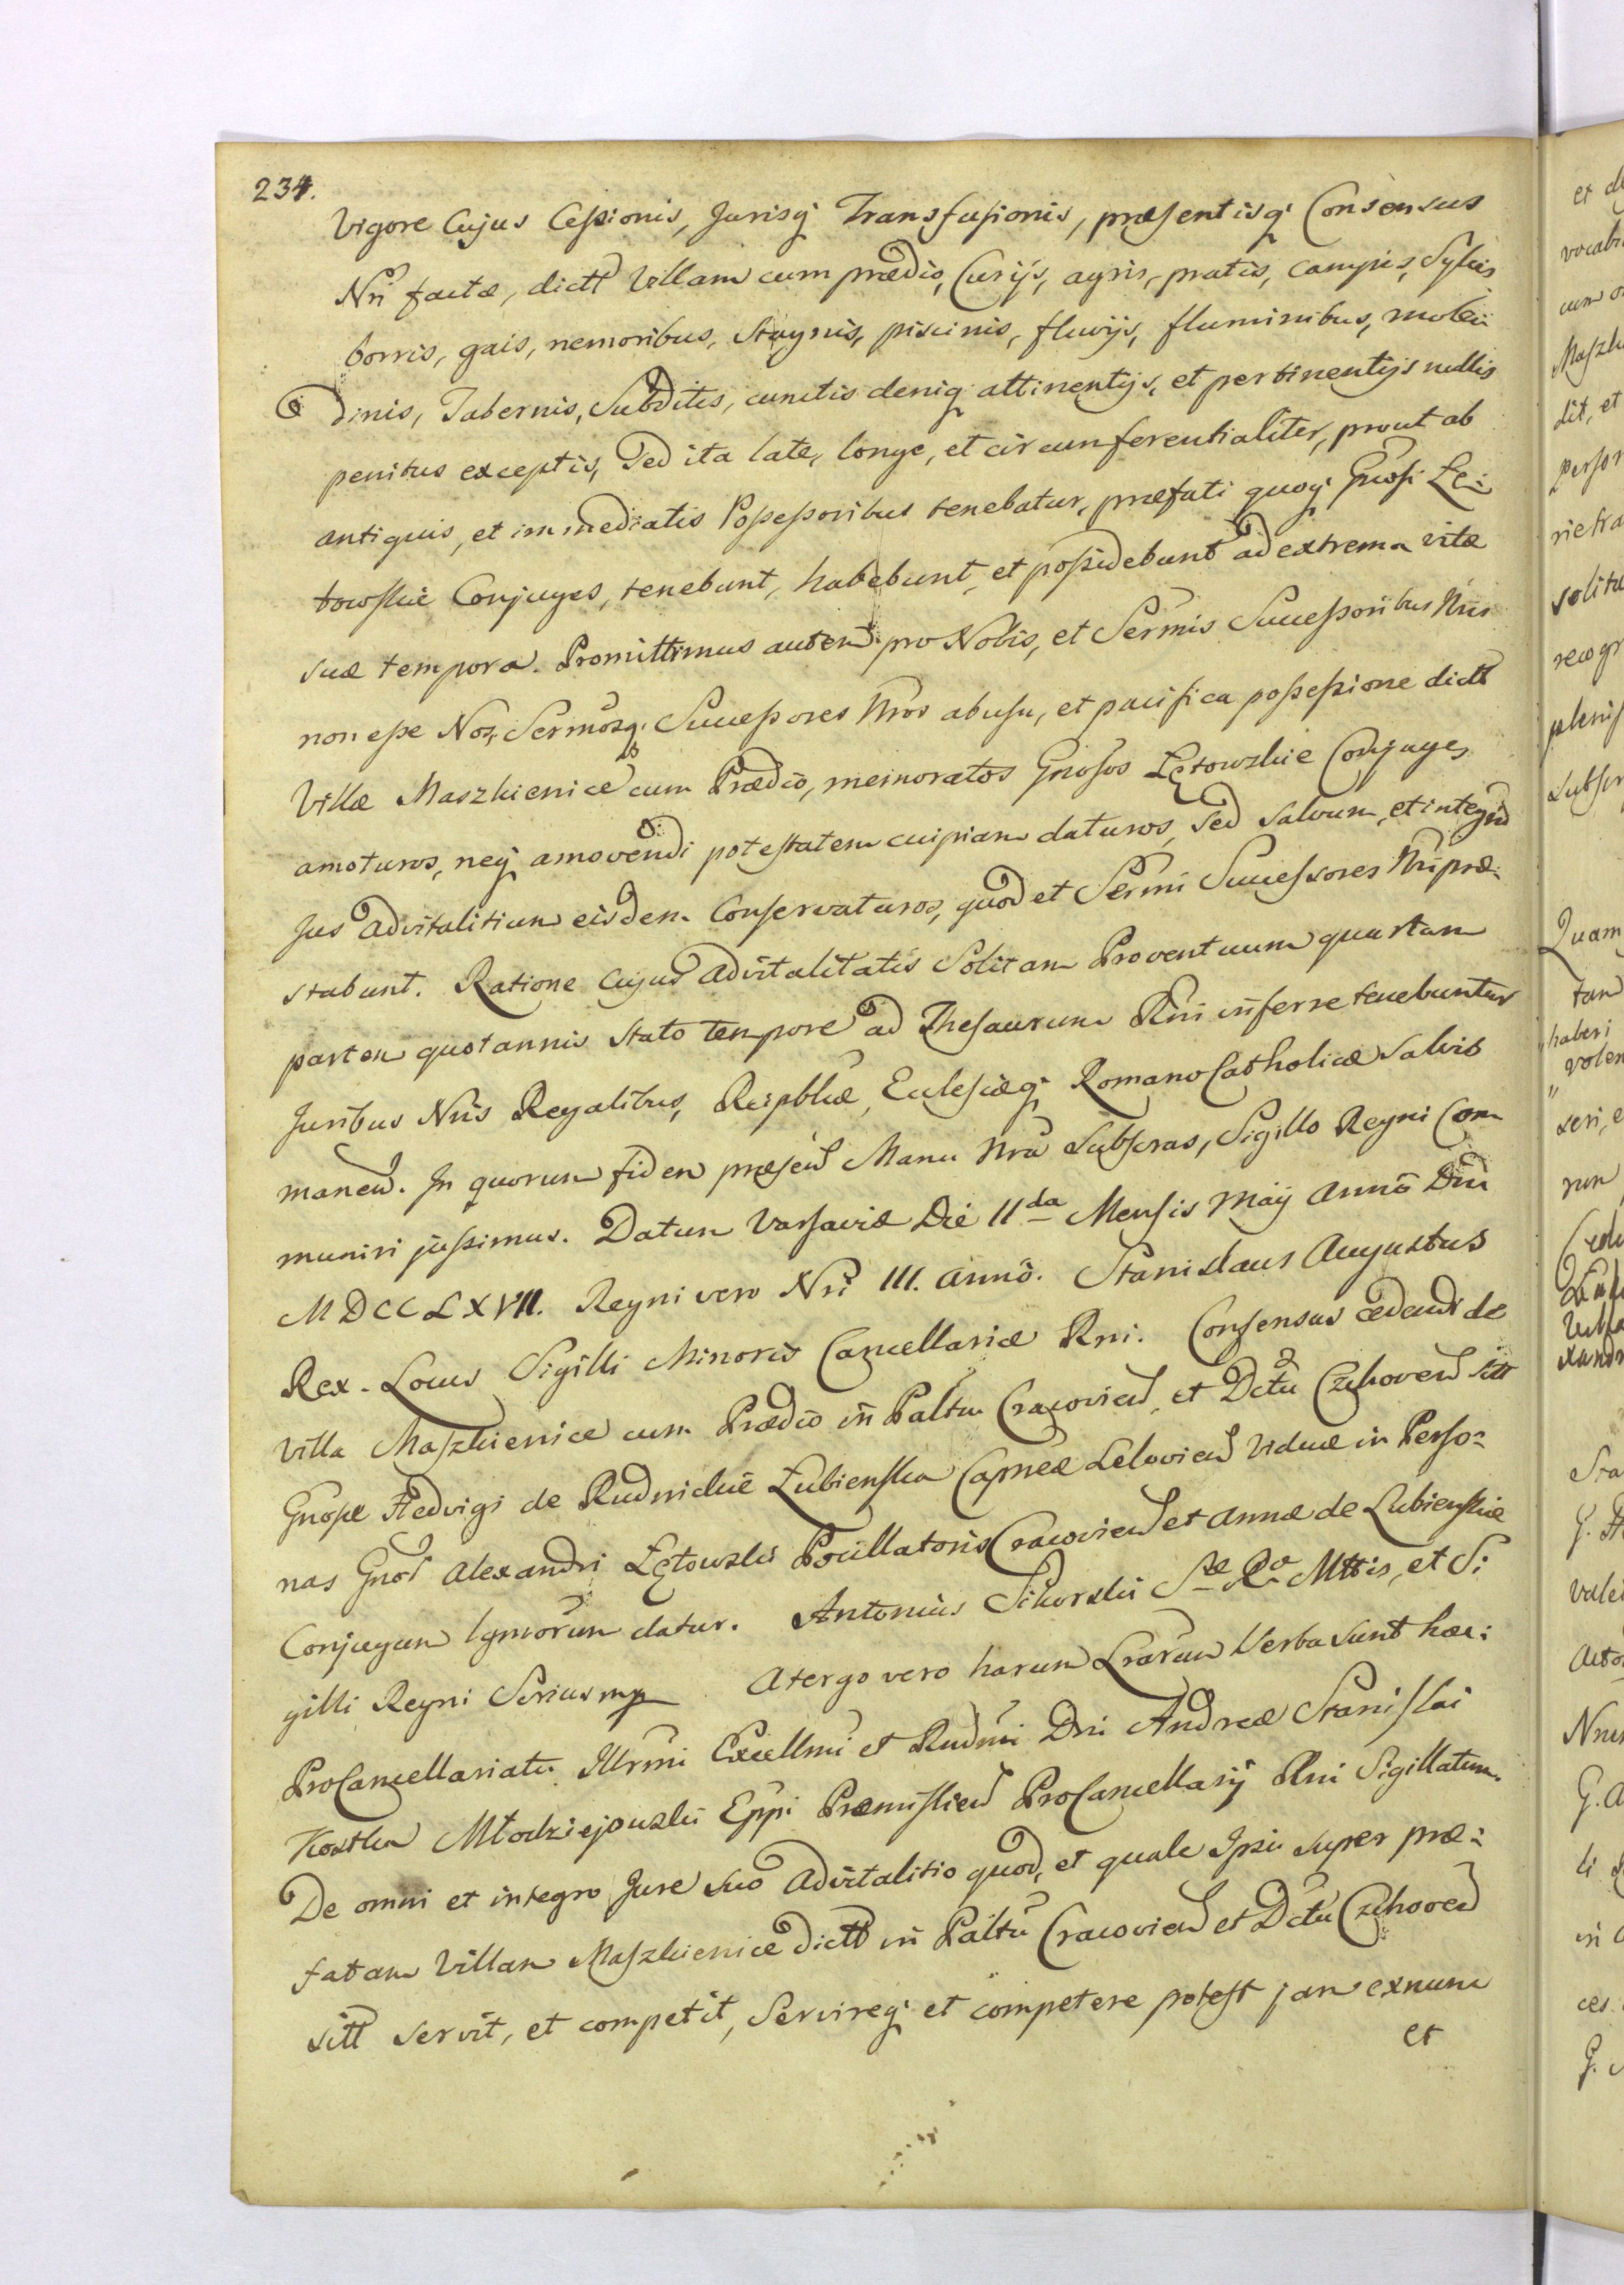 234.
Vigore Cujus Cessionis, Jurisq; Transfusionis, præsentisq; Consensus
Nri factæ, dictt Villam cum prædio, Curijs, agris, pratis, campis, Sylvis
borris, gais, nemoribus, Stagnis, piscinis, fluvijs, fluminibus, molen
dinis, Tabernis, Subditis, cunctis deniq; attinentijs, et pertinentijs nullis
penitus exceptis, Sed ita late, longe, et circumferentialiter, prout ab
antiquis, et immediatis Possessoribus tenebatur, præfati quoq; Gnosi Łę:
towskie Conjuges, tenebunt, habebunt, et possidebunt ad extrema vitæ
suæ tempora. Promittimus autem pro Nobis, et Sermis Successoribus Nris
non esse Nos, Sermosq; Successores Nros ab usu, et pacifica possessione dictt
Villæ Maszkienice cum Prædio, memoratos Gnosos Łętowskie Conjuges
amoturos, neq; amovendi potestatem cuipiam daturos, Sed salvum, et integrum
Jus advitalitium eisdem Conservaturos, quod et Sermi Successores Nri præ:
stabunt. Ratione cujus advitalitatis Solitam Proventuum quartam
partem quotannis stato tempore ad Thesaurum Rni inferre tenebuntur
Juribus Nris Regalibus, Reipblicæ, Ecclesiæq; Romano Catholicæ salvis
manen. In quorum fidem præsen Manu Nra Subscras, Sigillo Regni Com
muniri jussimus. Datum Varsaviæ Die 11da Mensis Maij Anno Dni
MDCCLXVII. Regni vero Nri III. Anno. Stanislaus Augustus
Rex. Locus Sigilli Minoris Cancellariæ Rni. Consensus cedendi de
Villa Maszkienice cum Prædio in Paltu Cracovien, et Dctu Czchoven sitt
Gnosæ Hedvigi de Rudnickie Łubienska Capneæ Lelovien Viduæ in Perso:
nas Gnos Alexandri Łętowski Pocillatoris Cracovien et Annæ de Łubienskie
Conjugum lgmorum datur. Antonius Sikorski Sæ Ræ Mttis, et Si
gilli Regni Scrius mp Atergo vero harum Lrarum Verba sunt hæc:
ProCancellariatu Illrmi Excellmi et Rudmi Dni Andreæ Stanislai
Kostka Młodziejowski Eppi Præmislien ProCancellarij Rni Sigillatum.
De omni et integro Jure suo Advitalitio quod, et quale Ipsi super præ:
fatam Villam Maszkienice dictt in Paltu Cracovien et Dctu Czchoven
sitt servit, et competit, Servireq; et competere potest jam exnunc
et